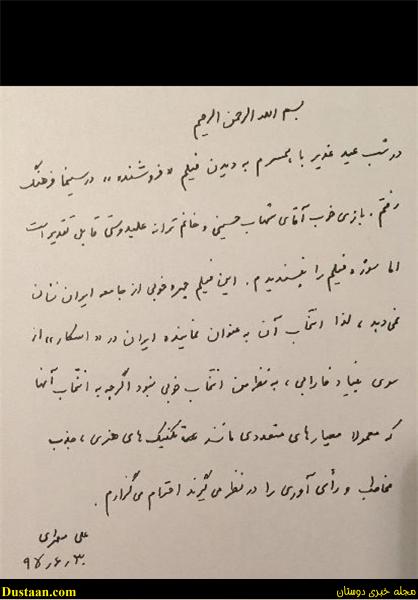 بسم الله الرحمن الرحیم
در شب عید غدیر با همسرم به دیدن فیلم «فروشنده» در سینما فرهنگ
رفتم. بازی خوب آقای شهاب حسینی و خانم ترانه علیدوستی قابل تقدیر است
اما سوژه فیلم را نپسندیدم. این فیلم چهره خوبی از جامعه ایران نشان
نمی‌دهد، لذا انتخاب آن به عنوان نماینده ایران در «اسکار» از
سوی بنیاد فارابی، به نظر من انتخاب خوبی نبود اگرچه به انتخاب آنها
که معمولا معیارهای متعددی مانند تکنیک‌های هنری، جذب
مخاطب و رأی آوری را در نظر می‌گیرند احترام می‌گذارم.
علی مطهری
Dustaan.com
مجله خبری دوستان